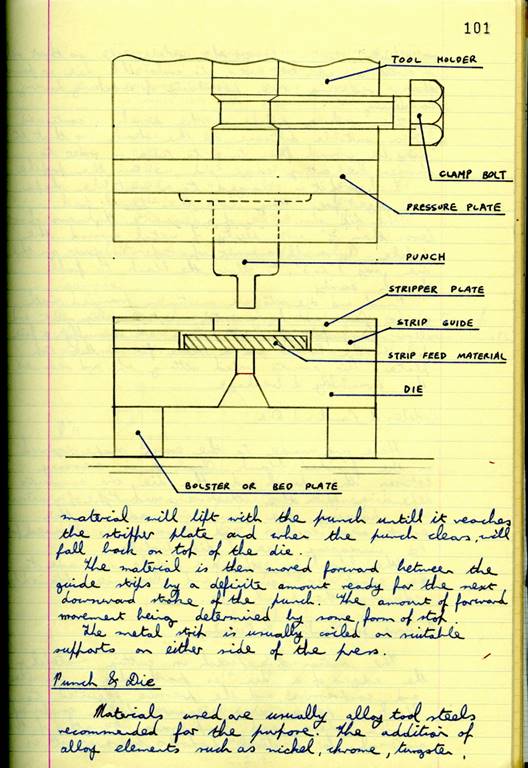 101
TOOL HOLDER
CLAMP BOLT
PRESSURE PLATE
PUNCH
STRIPPER PLATE
STRIP GUIDE
STRIP FEED MATERIAL
DIE
BOLSTER OR BED PLATE
material will lift with the punch untill it reaches
the stripper plate and when the punch clears, will
fall back on top of the die.
The material is then moved forward between the
guide strips by a definite amount ready for the next
downward stroke of the punch. The amount of forward
movement being determined by some form of stop.
The metal strip is usually coiled on suitable
supports on either side of the press.
Punch & Die
Materials used are usually alloy tool steels
recommended for the purpose. The addition of
alloy elements such as nickel, chrome, tungsten,